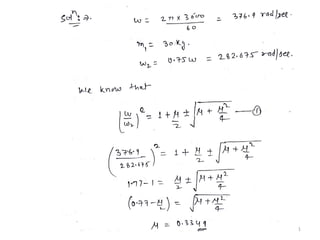 Solⁿ: 2. ω = 2π × 3600 / 60 = 376.9 rad/sec.
m₁ = 30 kg.
ω₂ = 0.75 ω = 282.675 rad/sec.
We know that
(ω/ω₂)² = 1 + μ/2 ± √(μ + μ²/4) — ①
(376.9/282.675)² = 1 + μ/2 ± √(μ + μ²/4)
1.77 - 1 = μ/2 ± √(μ + μ²/4)
(0.77 - μ/2) = √(μ + μ²/4)
μ = 0.3349